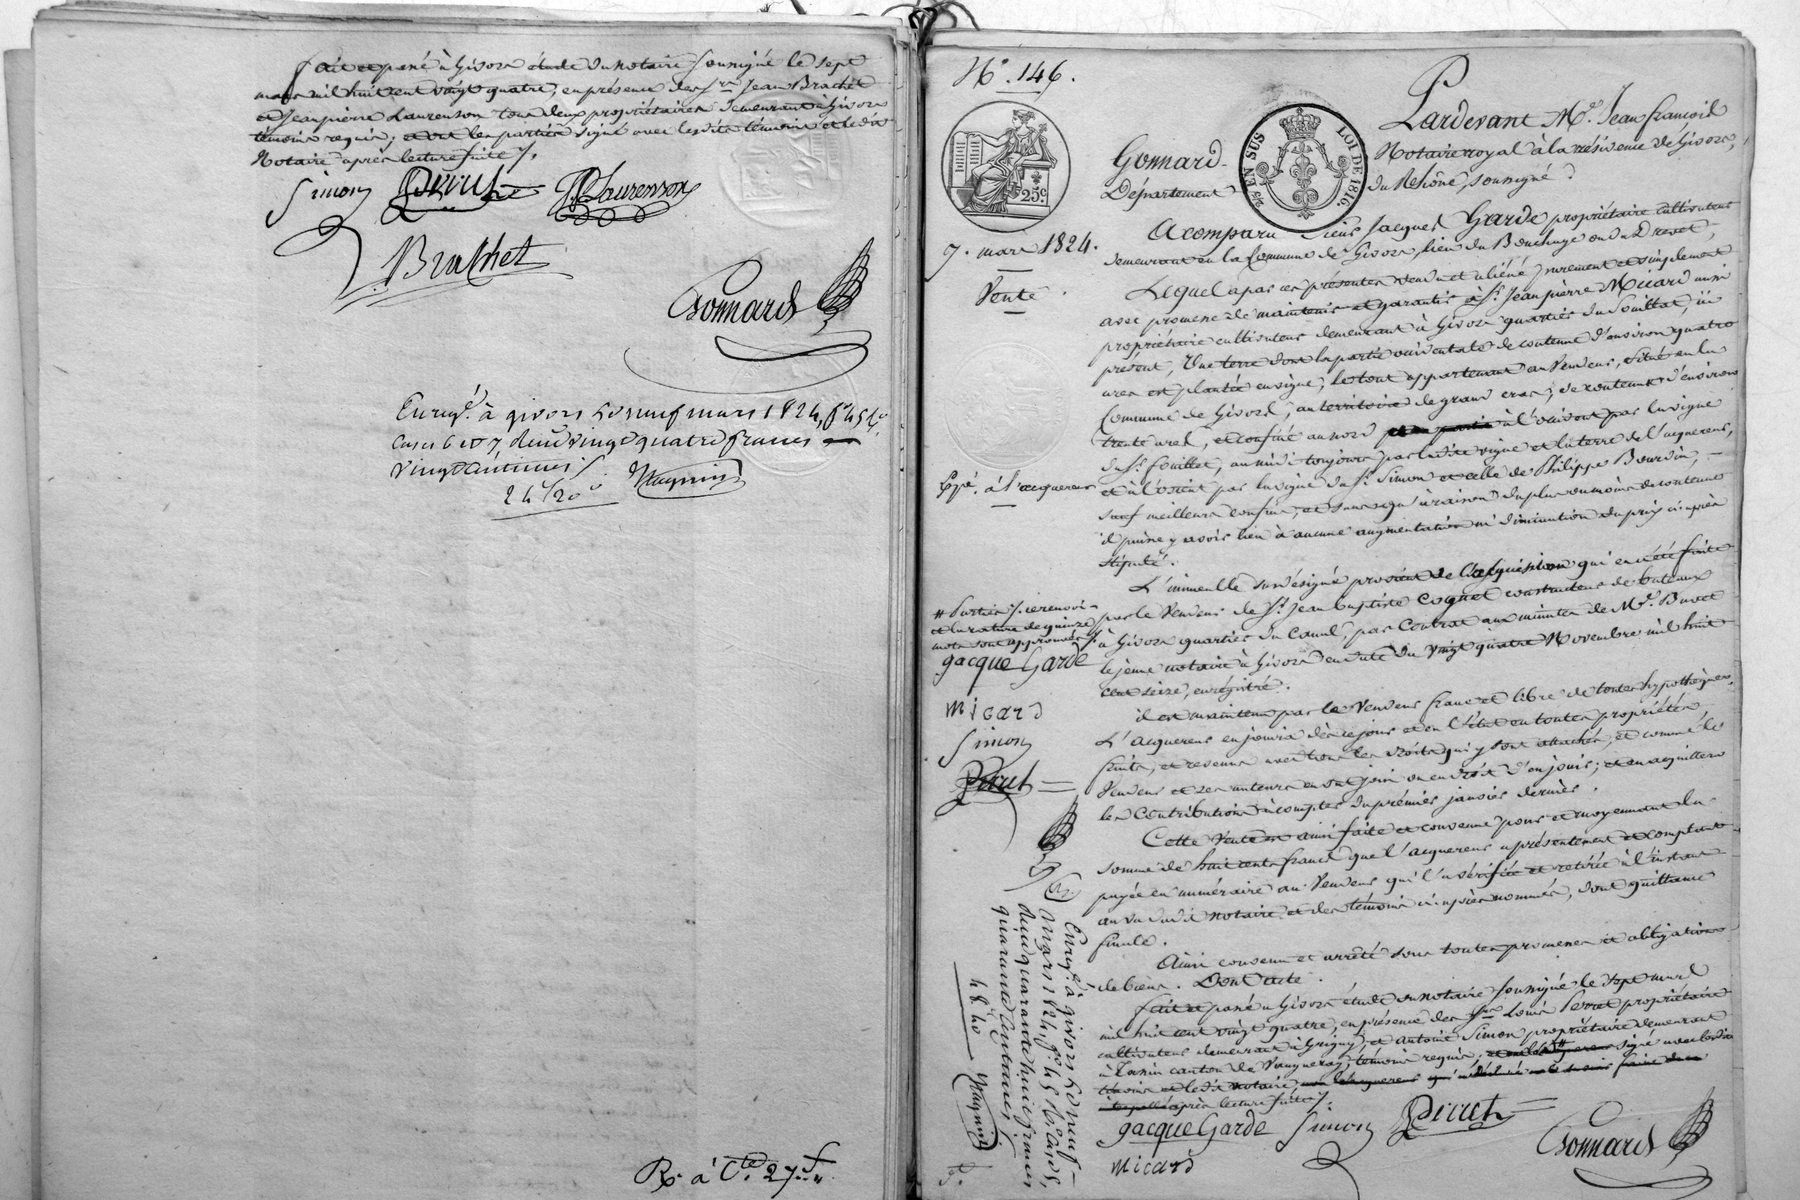 fait et passé à Givors étude du notaire soussigné le sept
mars mil huit cent vingt quatre, en présence des Srs Jean Brachet
et Jeanpierre Laurenson tous deux propriétaires demeurant à Givors
témoins requis; et ont les parties signé avec lesdits témoins et ledit
Notaire après lecture faite.
Simon Perret JP Laurenson
Brachet
Gonnard
Enregé. à givors le neuf mars 1824, fo 45 Ro.
Cases 6 et 7 deux vingt quatre francs
vingt centimes.
24f 20c Magnin
R. à Cte. 27f
No. 146.
25c
EN SUS LOI DE 1816.
7. mars 1824.
Vente
Expé. à l'acquereur
Pardevant Me. Jean françois
Gonnard Notaire royal à la résidence de Givors,
Département du Rhône, soussigné
A comparu sieur Jacques Garde propriétaire cultivateur
demeurant en la Commune de Givors, lieu du Bouchage ou du Drevet,
Lequel a par ces présentes vendu et aliéné purement et simplement
avec promesse de maintenir et garantir à Sr. Jeanpierre Micard aussi
propriétaire cultivateur demeurant à Givors quartier du fouillat, ici
présent, Une terre dont la partie occidentale de contenue d'environ quatre
ares est plantée en vigne, le tout appartenant au Vendeur, situé en la
Commune de Givors, au territoire de grand cras; de contenue d'environ
trente ares, et confiné au nord à l'occident par la vigne
du Sr. fouillet, au midi toujours par ladite vigne et la terre de l'acquereur,
et à l'orient par la vigne du Sr. Simon et celle de Philippe Bourdin,
sauf meilleurs confins, et sans qu'à raison du plus ou moins de contenue
il puisse y avoir lieu à aucune augmentation ni diminution du prix ci-après
stipulé.
L'immeuble susdésigné provient de l'acquisition qui en a été faite
par le Vendeur de Sr. Jean baptiste Coquet constructeur de bateaux
à Givors quartier du Canal, par Contrat aux minutes de Me. Buvet
le jeune notaire à Givors en date du vingt quatre Novembre mil huit
cent seize, enregistré.
il est maintenu par le Vendeur franc et libre de toutes hypothèques.
L'acquereur en jouira dès ce jour et en l'état en toutes propriétés,
fruits, et revenus avec tous les droits qui y sont attachés, et comme le
Vendeur et ses auteurs en ont joui ou eu droit d'en jouir; et en acquittera
les Contributions à compter du premier janvier dernier.
Cette Vente est ainsi faite et convenue pour et moyennant la
somme de huit cents francs que l'acquereur a présentement et comptant
payée en numéraire au Vendeur qui l'a vérifiée et retirée à l'instant
au vu dudit notaire et des témoins ci-après nommés, dont quittance
finale.
Ainsi convenu et arrêté sous toutes promesses et obligations
de biens. Dont acte.
fait et passé à Givors étude du notaire soussigné le sept mars
mil huit cent vingt quatre, en présence des Srs Louis Perret propriétaire
cultivateur demeurant à Grigny, et Antoine Simon propriétaire demeurant
à Tassin canton de Vaugneray, témoins requis, signé avec lesdits
témoins et ledit notaire,
après lecture faite.
Jacque Garde Simon Perret Gonnard
Micard
# Parties. ce renvoi
et la rature de quinze
mots sont approuvés.
Jacque Garde
Micard
Simon
Perret
Enregé. à givors le neuf
Mars 1824, fo 45 Ro cases,
deux quarante huit francs
quarante centimes.
48f 40c Magnin